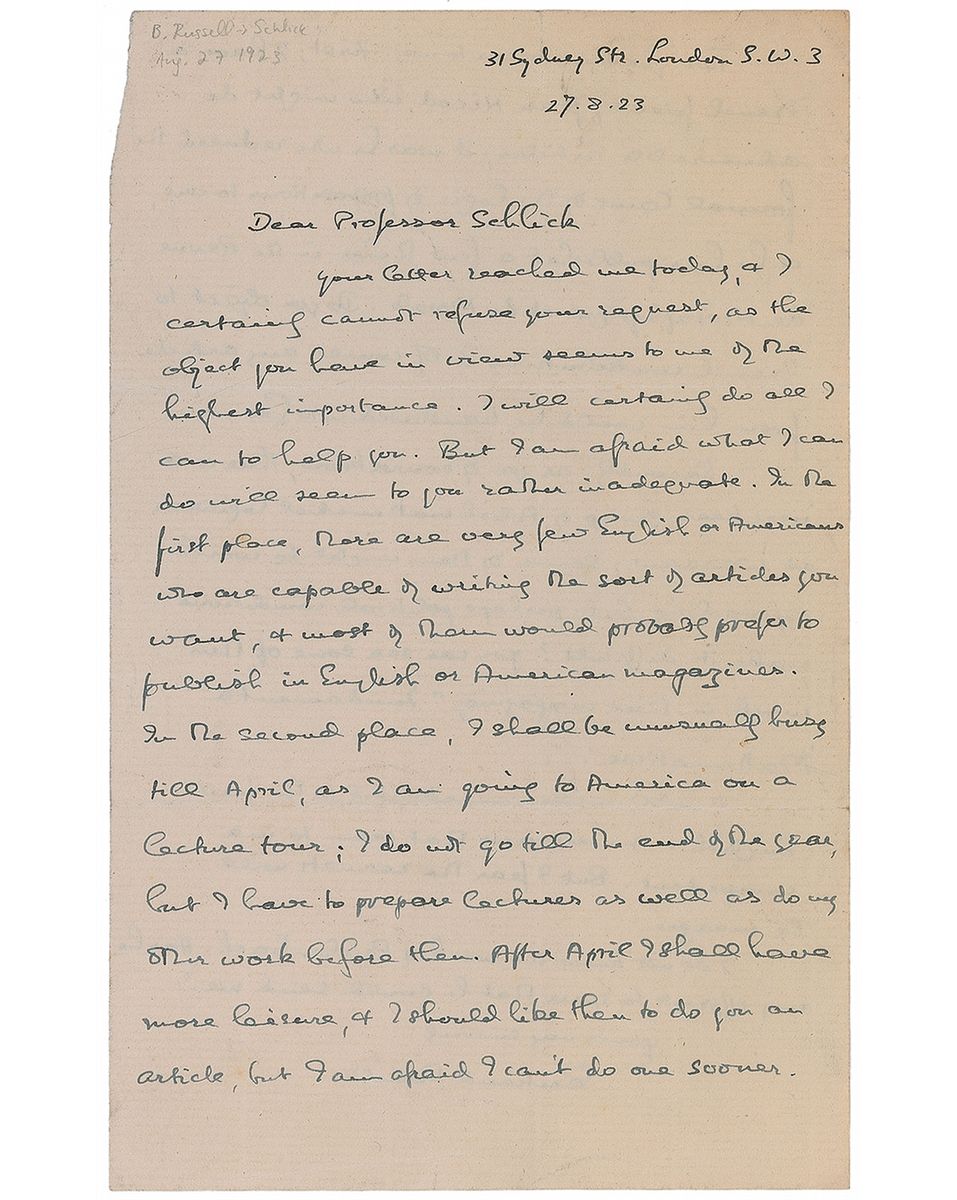 B. Russell → Schlick
Aug. 27 1923
31 Sydney Str. London S.W. 3
27.8.23
Dear Professor Schlick
your letter reached me today, & I
certainly cannot refuse your request, as the
object you have in view seems to me of the
highest importance. I will certainly do all I
can to help you. But I am afraid what I can
do will seem to you rather inadequate. In the
first place, there are very few English or Americans
who are capable of writing the sort of articles you
want, & most of them would probably prefer to
publish in English or American magazines.
In the second place, I shall be unusually busy
till April, as I am going to America on a
lecture tour; I do not go till the end of the year,
but I have to prepare lectures as well as do my
other work before then. After April I shall have
more leisure, & I should like then to do you an
article, but I am afraid I can't do one sooner.